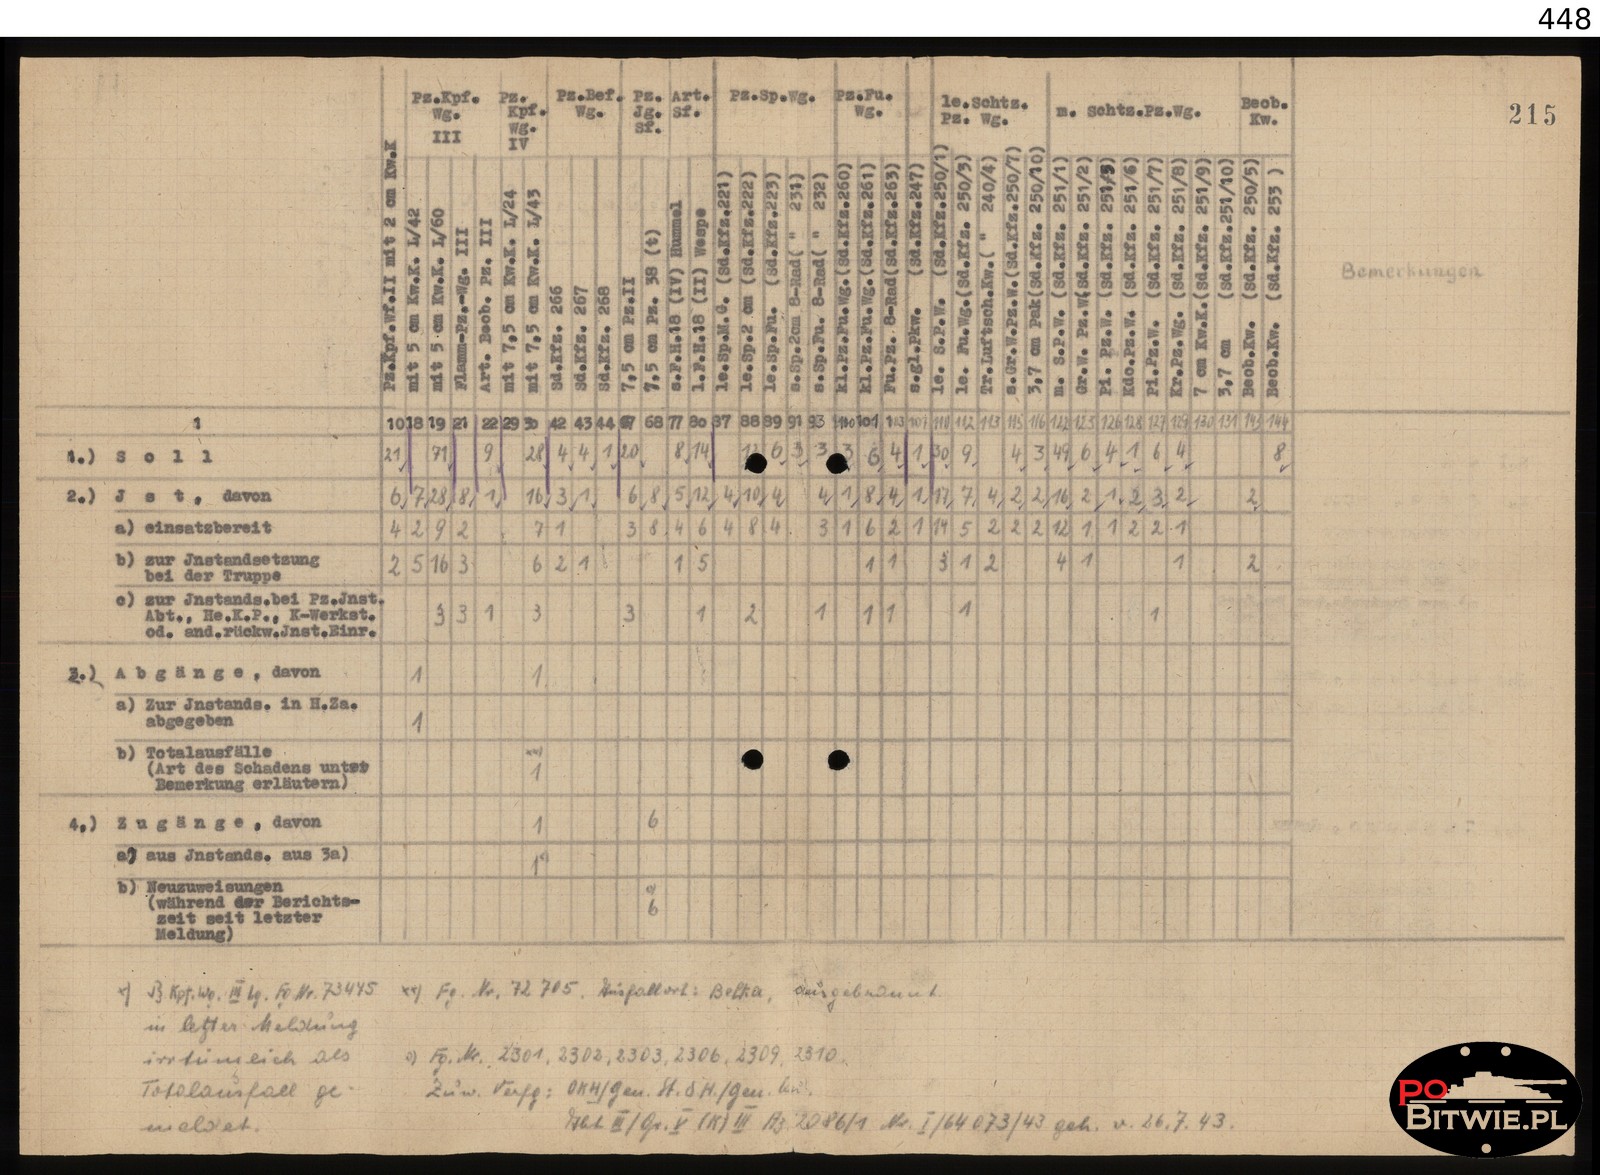 448
215
Pz.Kpf. Wg. III
Pz. Kpf. Wg. IV
Pz.Bef. Wg.
Pz. Jg. Sf.
Art. Sf.
Pz.Sp.Wg.
Pz.Fu. Wg.
le.Schtz. Pz. Wg.
m. Schtz.Pz.Wg.
Beob. Kw.
Pz.Kpf.Wf.II mit 2 cm Kw.K
mit 5 cm Kw.K. L/42
mit 5 cm Kw.K. L/60
Flamm-Pz.-Wg. III
Art. Beob. Pz. III
mit 7,5 cm Kw.K. L/24
mit 7,5 cm Kw.K. L/43
Sd.Kfz. 266
Sd.Kfz. 267
Sd.Kfz. 268
7,5 cm Pz.II
7,5 cm Pz. 38 (t)
s.F.H.18 (IV) Hummel
l.F.H.18 (II) Wespe
le.Sp.M.G. (Sd.Kfz.221)
le.Sp.2 cm (Sd.Kfz.222)
le.Sp.Fu. (Sd.Kfz.223)
s.Sp.2cm 8-Rad( " 231)
s.Sp.Fu. 8-Rad( " 232)
kl.Pz.Fu.Wg.(Sd.Kfz.260)
kl.Pz.Fu.Wg.(Sd.Kfz.261)
Fu.Pz. 8-Rad(Sd.Kfz.263)
s.gl.Pkw. (Sd.Kfz.247)
le. S.P.W. (Sd.Kfz.250/1)
le. Fu.Wg.(Sd.Kfz. 250/3)
Tr.Luftsch.Kw.( " 240/4)
s.Gr.W.Pz.W.(Sd.Kfz.250/7)
3,7 cm Pak(Sd.Kfz. 250/10)
m. S.P.W. (Sd.Kfz. 251/1)
Gr.W. Pz.W(Sd.Kfz. 251/2)
Pi. Pz.W. (Sd.Kfz. 251/5)
Kdo.Pz.W. (Sd.Kfz. 251/6)
Pi.Pz.W. (Sd.Kfz. 251/7)
Kr.Pz.Wg. (Sd.Kfz. 251/8)
7 cm Kw.K.(Sd.Kfz. 251/9)
3,7 cm (Sd.Kfz.251/10)
Beob.Kw. (Sd.Kfz. 250/5)
Beob.Kw. (Sd.Kfz. 253 )
Bemerkungen
1 10 18 19 21 22 29 30 42 43 44 67 68 77 80 87 88 89 91 93 100 101 103 107 110 112 113 115 116 122 123 126 128 127 129 130 131 143 144
1.) S o l l 21 71 9 28 4 4 1 20 8 14 6 3 3 3 6 4 1 30 9 4 3 49 6 4 1 6 4 8
2.) J s t , davon 6 7 28 8 1 16 3 1 6 8 5 12 4 10 4 4 1 8 4 1 17 7 4 2 2 16 2 1 2 3 2 2
a) einsatzbereit 4 2 9 2 7 1 3 8 4 6 4 8 4 3 1 6 2 1 14 5 2 2 2 12 1 1 2 2 1
b) zur Jnstandsetzung 2 5 16 3 6 2 1 1 5 1 1 3 1 2 4 1 1 2
bei der Truppe
c) zur Jnstands.bei Pz.Jnst.
Abt., He.K.P., K-Werkst. 3 3 1 3 3 1 2 1 1 1 1 1
od. and.rückw.Jnst.Einr.
3.) A b g ä n g e , davon 1 1
a) Zur Jnstands. in H.Za.
abgegeben 1
b) Totalausfälle xx)
(Art des Schadens unter 1
Bemerkung erläutern)
4.) Z u g ä n g e , davon 1 6
a) aus Jnstands. aus 3a) 1
b) Neuzuweisungen
(während der Berichts- 6
zeit seit letzter
Meldung)
x) Pz Kpf. Wg. III Lg. Fg Nr. 73475
in letzter Meldung
irrtümlich als
Totalausfall ge-
meldet.
xx) Fg. Nr. 72 705. Ausfallort: Bolka, ausgebrannt.
o) Fg. Nr. 2301, 2302, 2303, 2306, 2309, 2310.
Zuw. Verfg: OKH/Gen. St. d H./Gen.
Abt III/Gr. V (K) III Az. 2086/1 Nr. I/64 073/43 geh. v. 26.7.43.
PO
BITWIE.PL